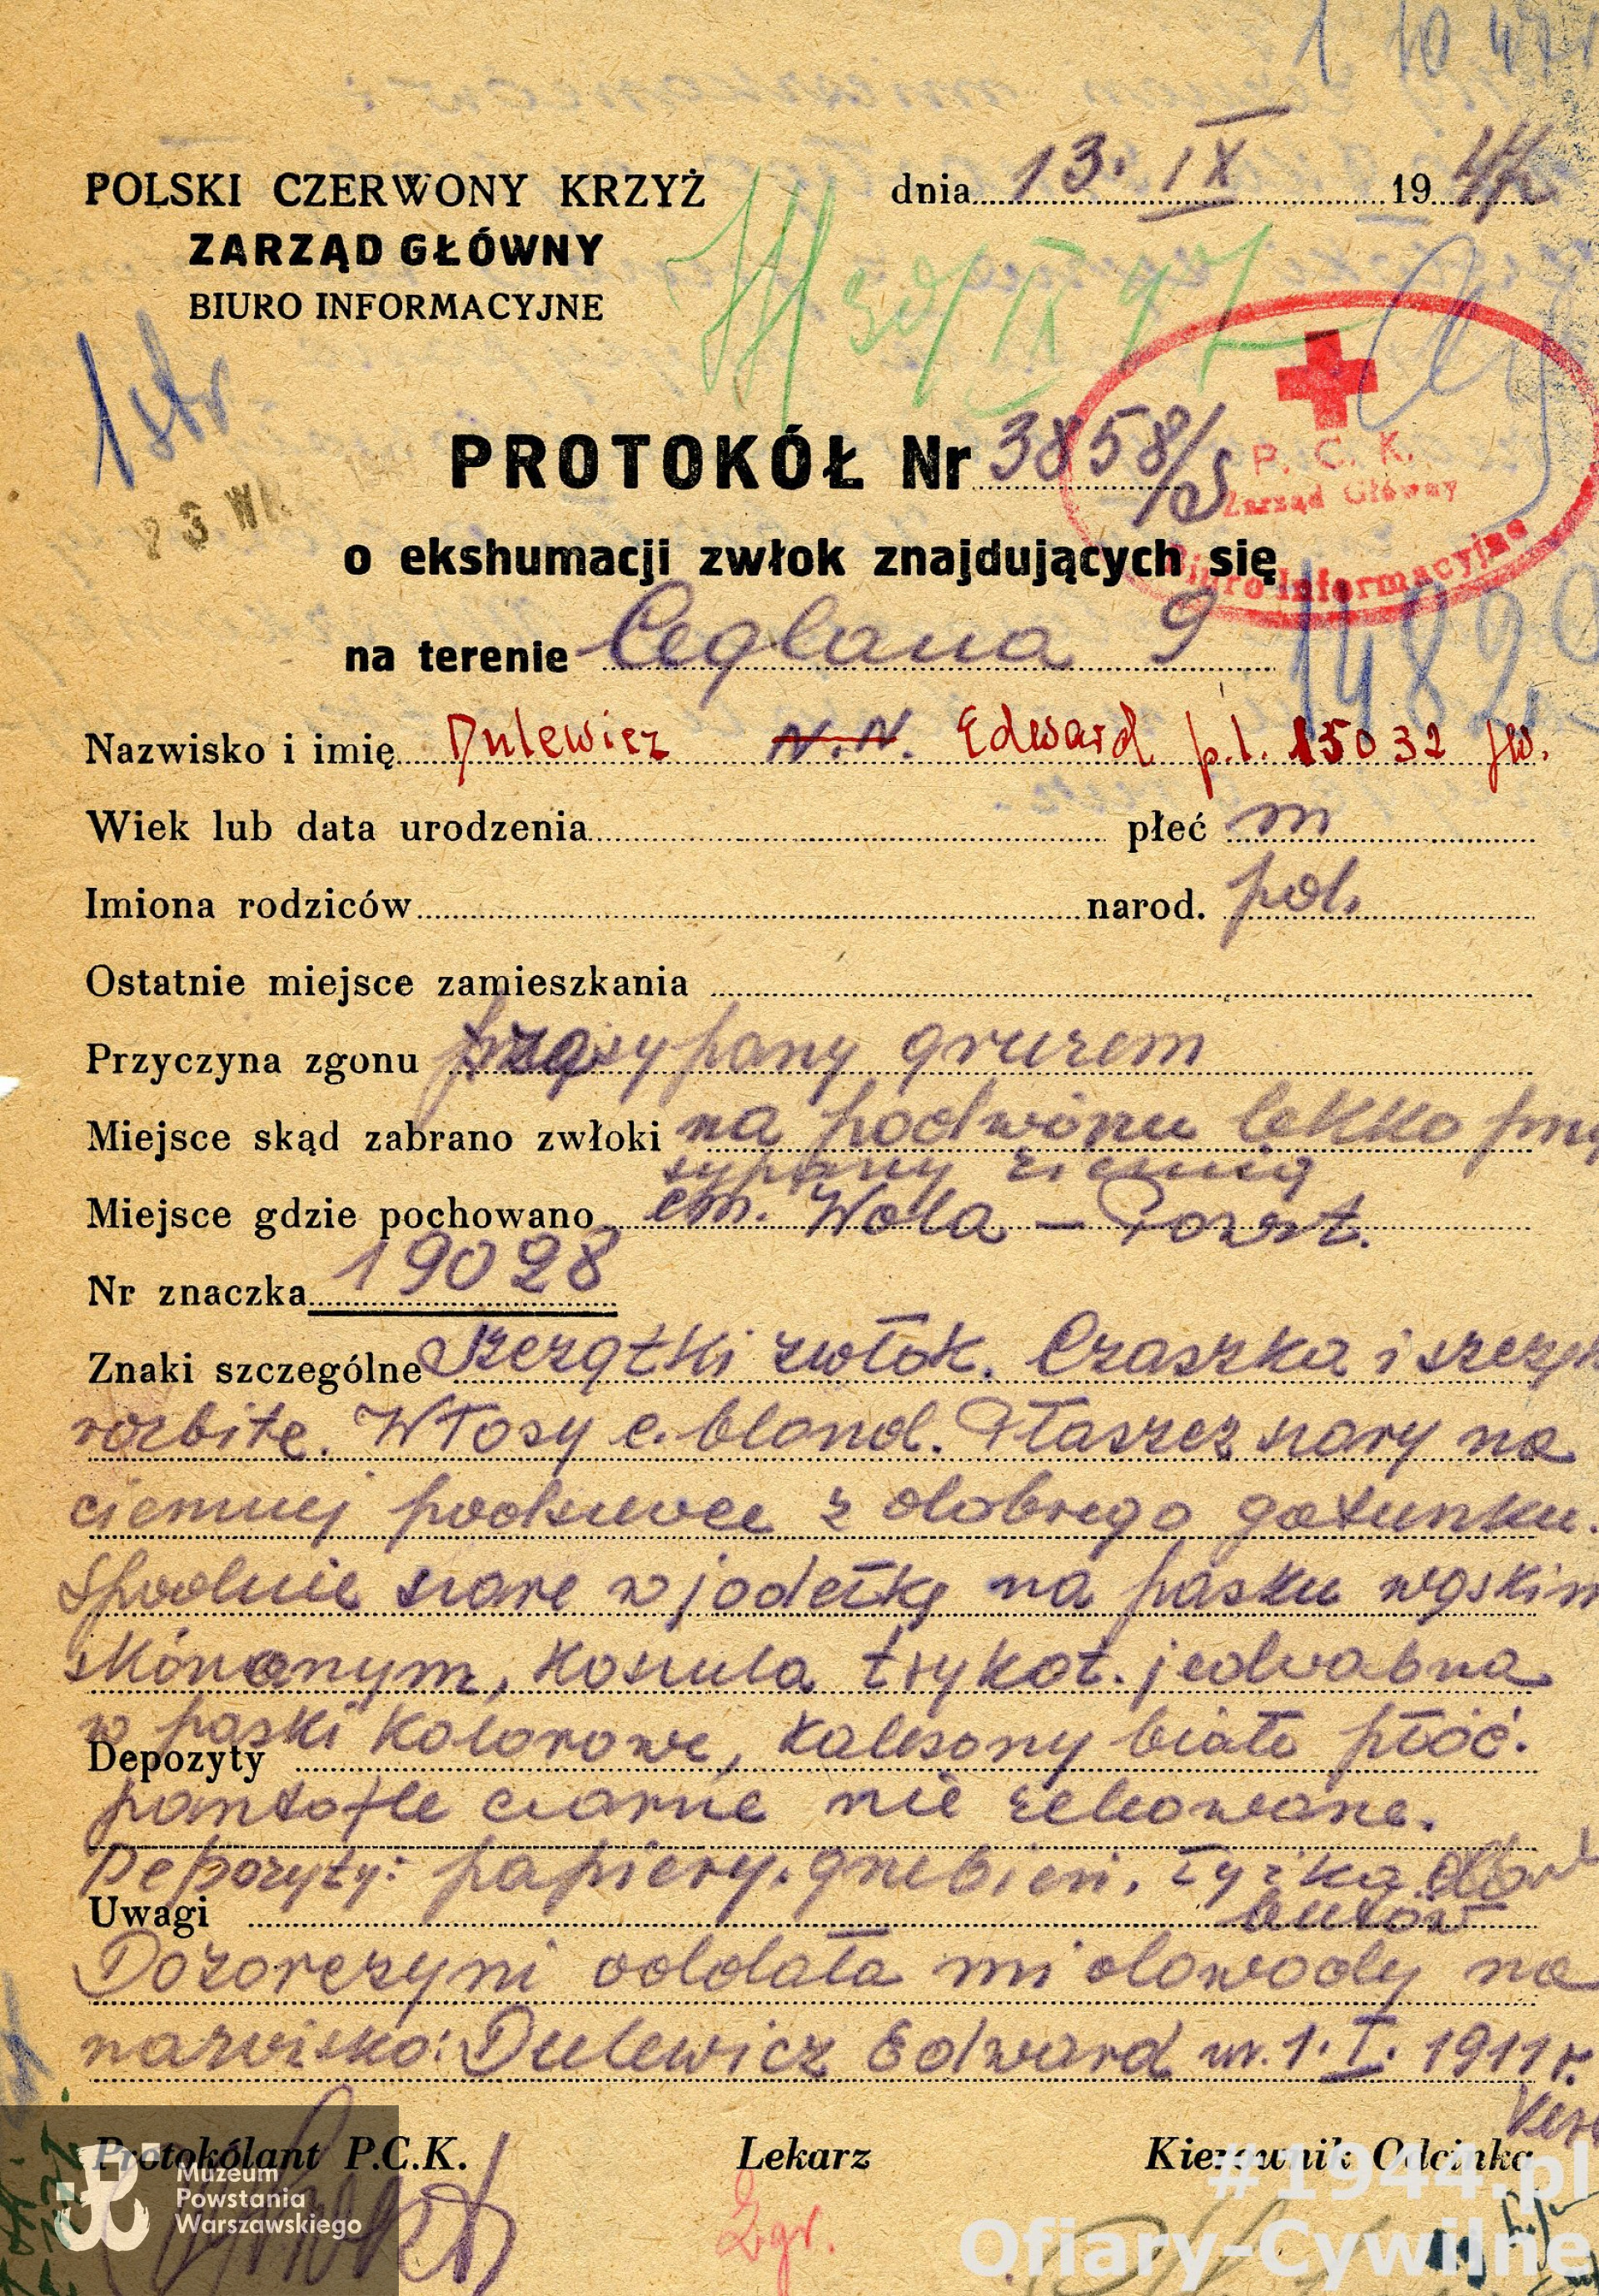 1 10 47
POLSKI CZERWONY KRZYŻ
dnia 13. IX 1947
ZARZĄD GŁÓWNY
BIURO INFORMACYJNE
30/IX 47
1 str
PROTOKÓŁ Nr 3858/S
P. C. K.
Zarząd Główny
Biuro Informacyjne
23 WR
o ekshumacji zwłok znajdujących się
na terenie Ceglana 9
1482
Nazwisko i imię Dulewicz N.N. Edward p.l. 15032 jw.
Wiek lub data urodzenia płeć m
Imiona rodziców narod. pol.
Ostatnie miejsce zamieszkania
Przyczyna zgonu przysypany gruzem
Miejsce skąd zabrano zwłoki na podwórzu lekko przy
sypany ziemią
Miejsce gdzie pochowano cm. Wola – Powst.
Nr znaczka 19028
Znaki szczególne Szczątki zwłok. Czaszka i szczęk
rozbite. Włosy c. blond. Płaszcz szary na
ciemnej podszewce z dobrego gatunku.
Spodnie szare w jodełkę na pasku wąskim
skórzanym, koszula trykot. jedwabna
w paski kolorowe, kalesony białe płóć.
Depozyty
pantofle czarne nie zelowane.
Depozyty: papiery, grzebień, łyżka do
butów
Uwagi
Dozorczyni oddała mi dowody na
nazwisko: Dulewicz Edward ur. 1. I. 1911 r.
Protokólant P.C.K.
Lekarz
Kierownik Odcinka
Zgr.
Muzeum
Powstania
Warszawskiego
#1944.pl
Ofiary-Cywilne